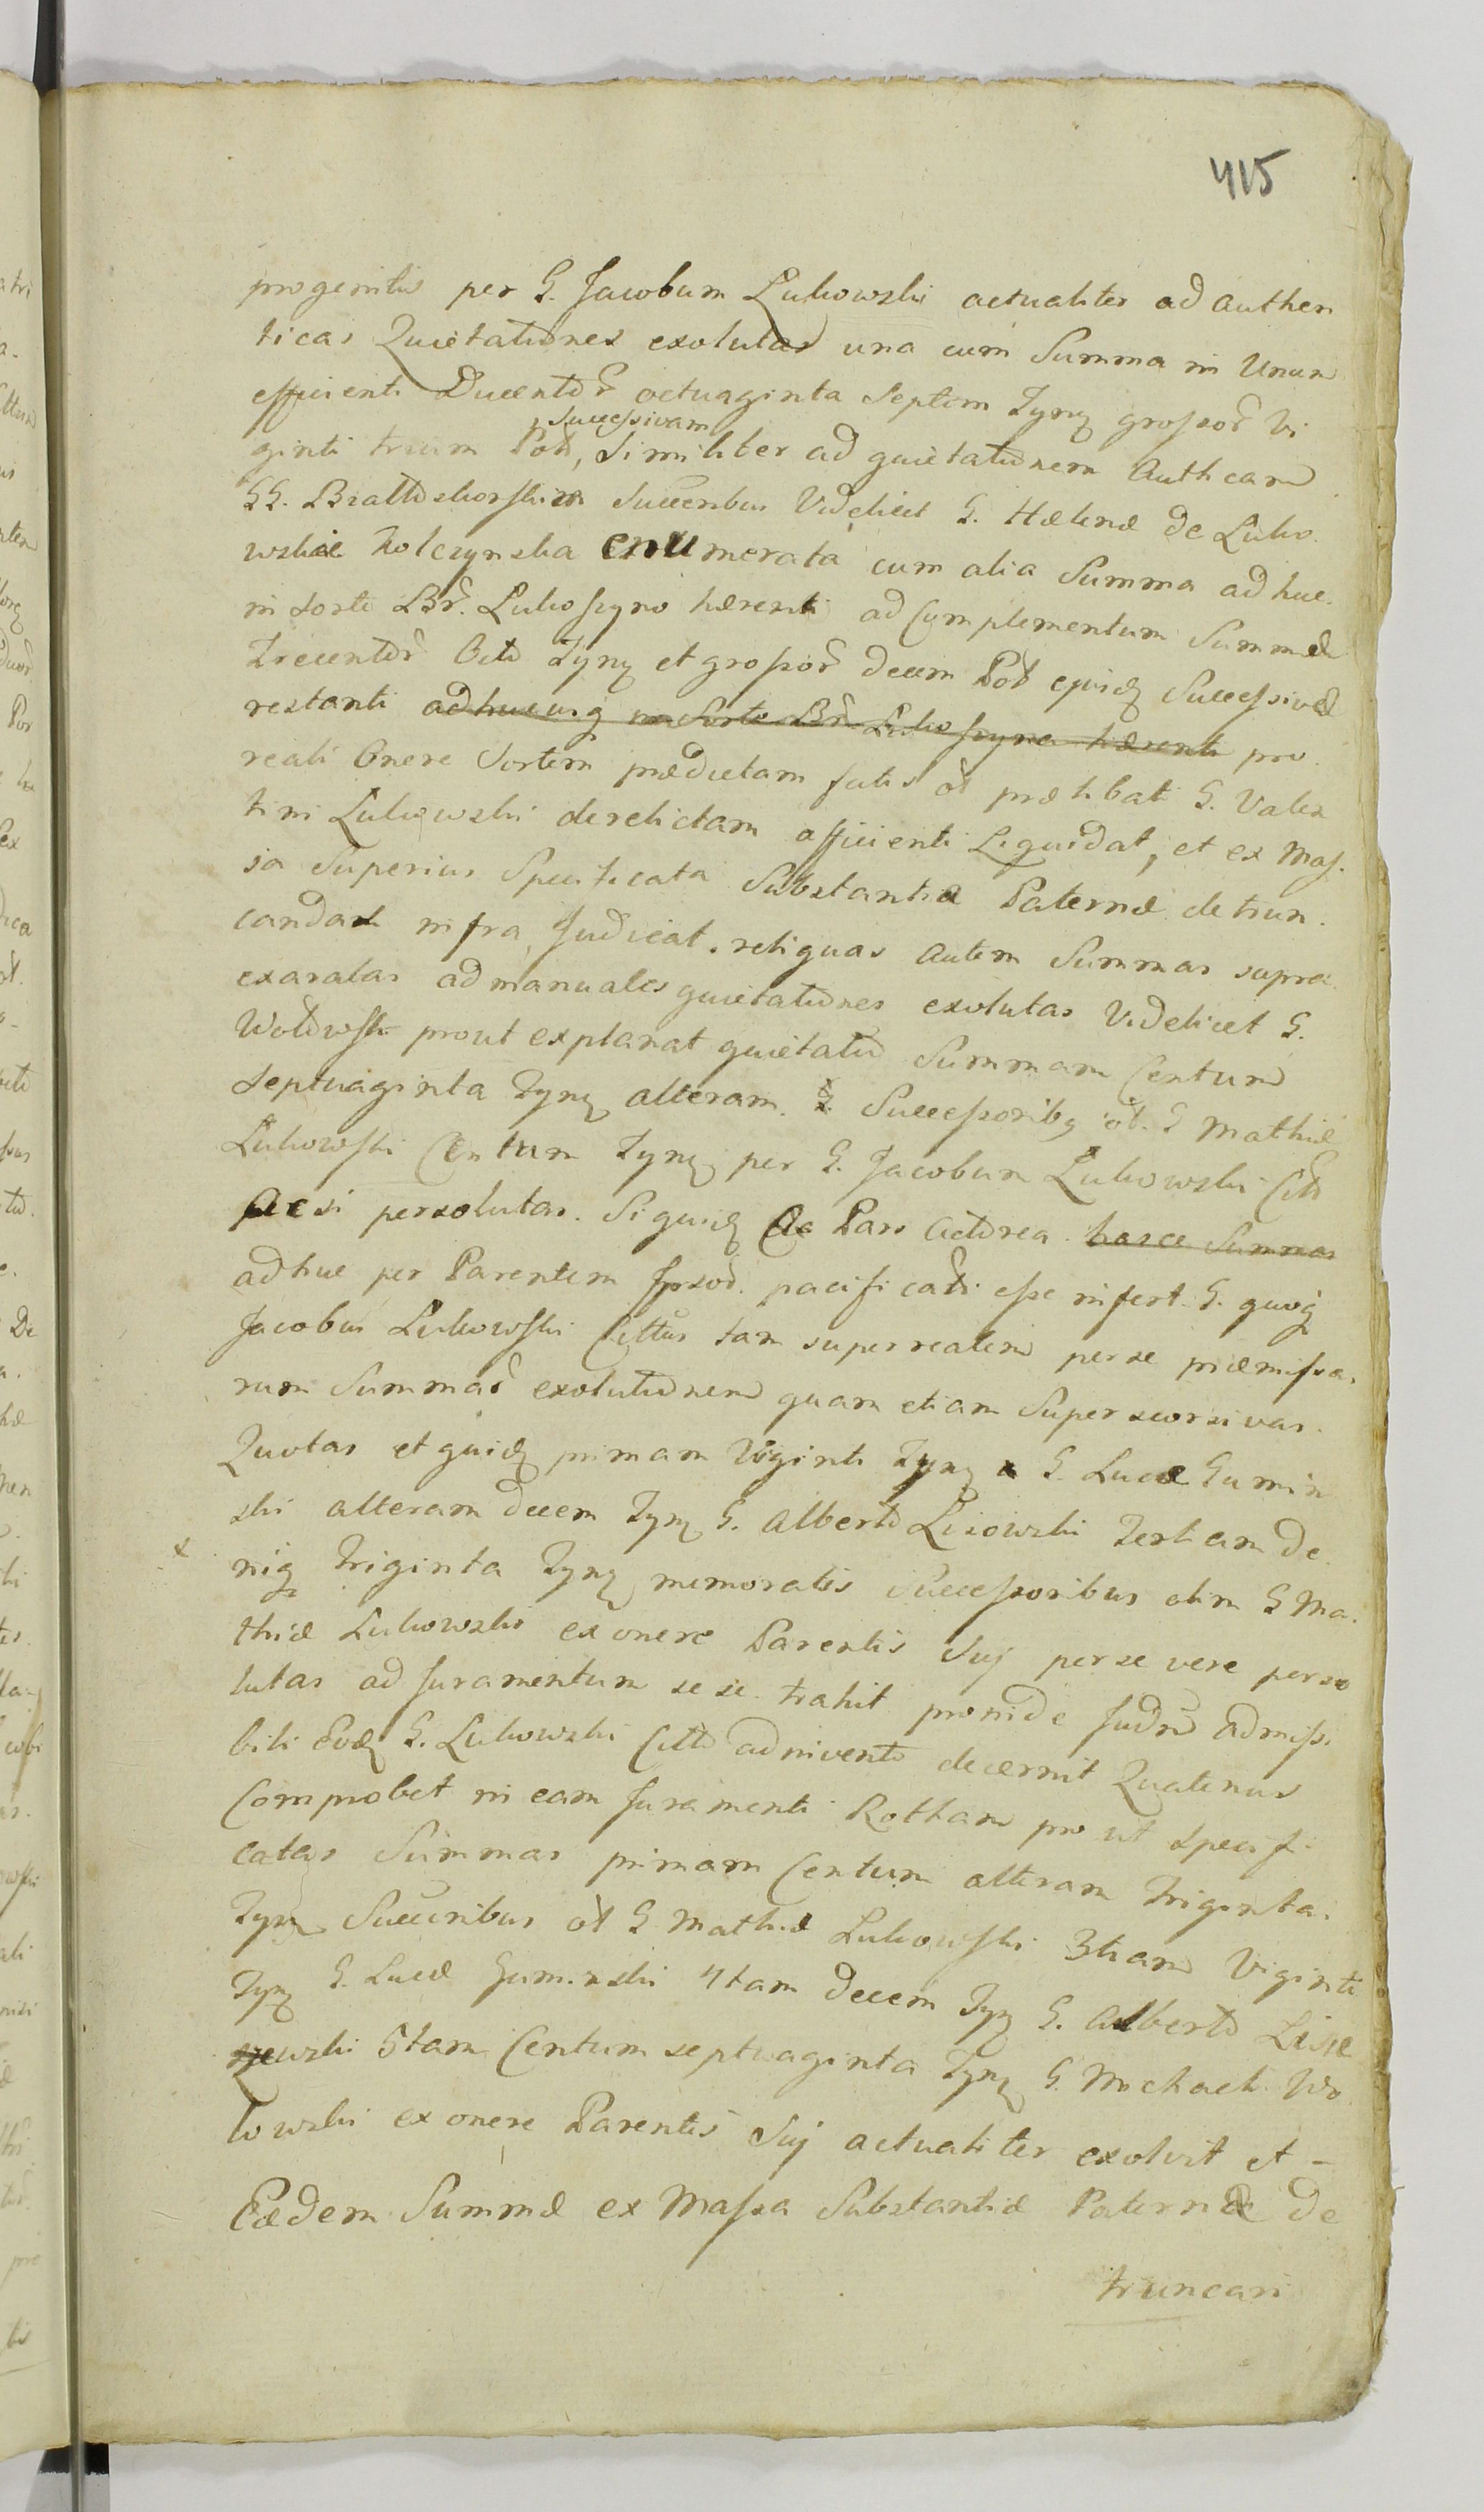 415
progenitis per G. Jacobum Lukowski actualiter ad authen
ticas Quietationes exolutas una cum Summa in Unum
efficienti Ducentor octuaginta Septem Tynq grossor Vi
successivam
ginti trium Pol, Similiter ad quietationem Authcam
GG. Bialloskorskim Succeribus Videlicet G. Helenæ de Luko
wskie Kolczynska enumerata cum alia Summa adhuc
in sorte Br. Lukoszyno hærenti ad Complementum Summæ
Trecentor Octo Tynq et grossor decem Pol ejusq Successivæ
restanti adhucusq in Sorte Br Lukoszyno hærenti pro
reali Onere Sortem prædictam fatis ol prælibati G. Valen
tini Lukowski derelictam afficienti Liquidat, et ex Mas
sa Superius Specificata Substantiæ Paternæ detrun
candas infra Judicat. reliquas autem Summas supra
exaratas ad manuales quietationes exolutas Videlicet G.
Wolowski prout explanat quietatio Summam Centum
Septuaginta Tynq alteram Successoribq ol. G Mathiæ
Lukowski Centum Tynq per G. Jacobum Lukowski Citt
ac si persolutas. Siquiq Pars Actorea hasce Summas
adhuc per Parentem Ipsor. pacificatas esse infert. G. quoq
Jacobus Lukowski Cittus tam super realem per se præmissa
rum Summar exolutionem quam etiam Super seorsivas
Quotas et quiq primam Viginti Tynq G. Lucæ Gumin
ski alteram decem Tynq G. Alberto Lisowski Tertiam de
x niq Triginta Tynq memoratis Successoribus olim G Ma
thiæ Lukowski ex onere Parentis Suj per se vere perso
lutas ad Juramentum sese trahit proinde Judm admissi
bili Eoq G. Lukowski Citto adnivento decernit Quatenus
Comprobet in eam Juramenti Rotham pro ut specifi
catas Summas primam Centum alteram Triginta
Tynq Succeribus ol G Mathiæ Lukowski 3tiam Viginti
Tynq G. Lucæ Guminski 4tam decem Tynq G. Alberto Lisie
wski 5tam Centum septuaginta Tynq G. Michaeli Wo
lowski ex onere Parentis Suj actualiter exolvit et -
Eædem Summæ ex Massa Substantiæ Paternæ de
truncari